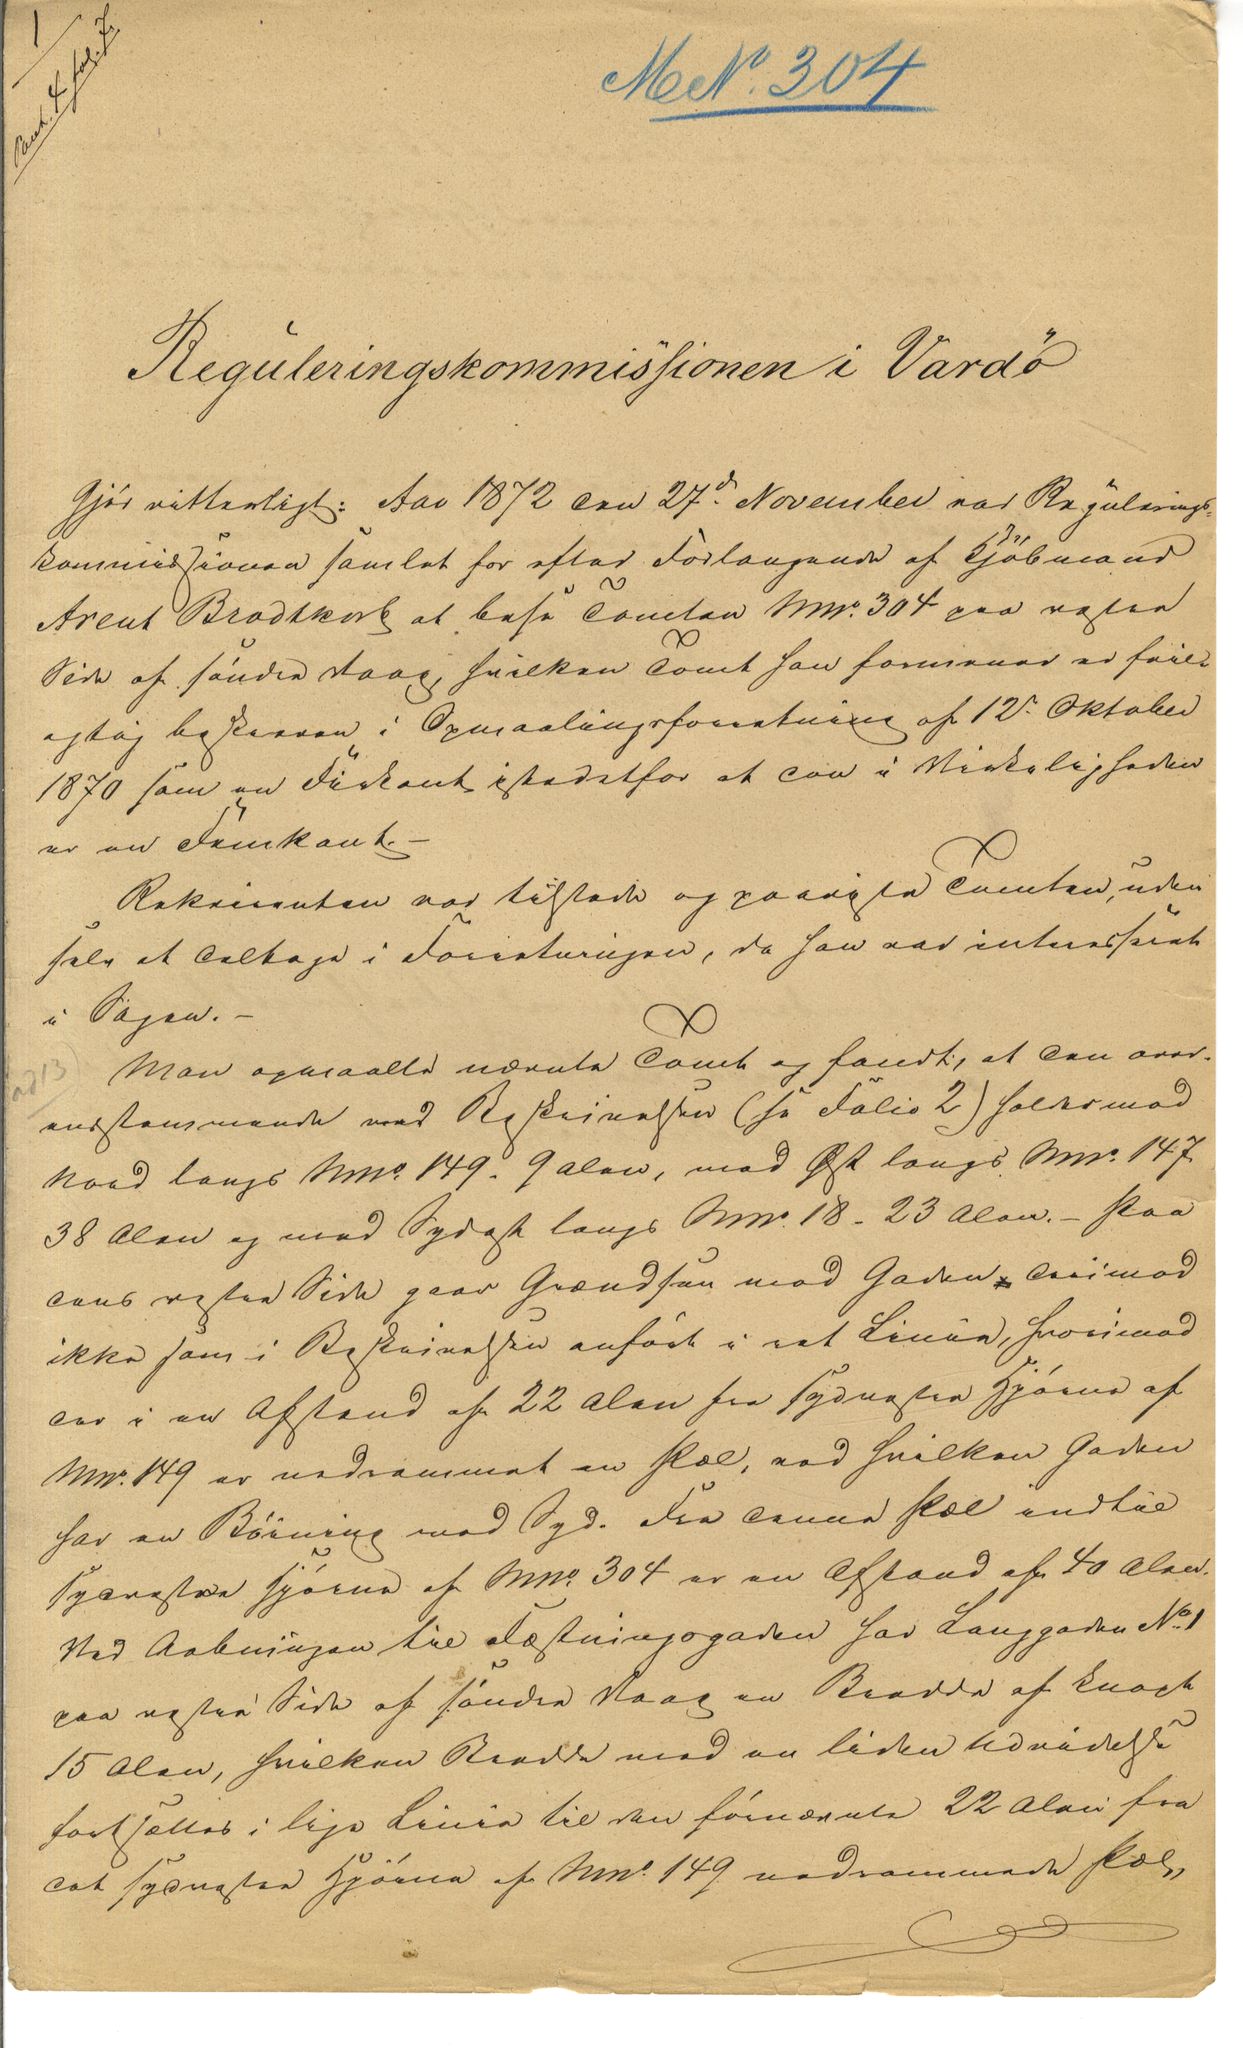 1
Pant. 4 fol. 7
MNo. 304
Reguleringskommissionen i Vardö
Gjör vitterligt: Aar 1872 den 27d. November var Regulerings-
kommissionen samlet for efter Forlangende af Kjöbmand
Arent Brodtkorb at bese Tomten MNo. 304 paa vestre
Side af söndre Vaag, hvilken Tomt han formener er feil-
agtig beskreven i Opmaalingsforretning af 12. Oktober
1870 som en Firkant istedetfor at den i Virkeligheden
er en Femkant. –
Rekvirenten var tilstede og paaviste Tomten, uden
selv at deltage i Forretningen, da han var interesseret
i Sagen. –
Man opmaalte nævnte Tomt og fandt, at den over-
ensstemmende med Beskrivelsen (se Folio 2) holder mod
Nord langs MNo. 149. 9 Alen, mod Øst langs MNo. 147
38 Alen og mod Sydost langs MNo. 18 - 23 Alen. – Paa
dens vestre Side gaar Grændsen mod Gaden derimod
ikke som i Beskrivelsen anfört i ret Linie, hvorimod
der i en Afstand af 22 Alen fra sydvestre Hjörne af
MNo. 149 er nedrammet en Pæl, ved hvilken Gaden
har en Böining mod Syd. Fra denne Pæl indtil
sydvestre Hjörne af MNo. 304 er en Afstand af 40 Alen.
Ved Aabningen til Fæstningsgaden har Langgaden No. 1
paa vestre Side af söndre Vaag en Bredde af knapt
15 Alen, hvilken Bredde med en liden Udvidelse
fortsættes i lige Linie til den förnævnte 22 Alen fra
det sydvestre Hjörne af MNo. 149 nedrammede Pæl,